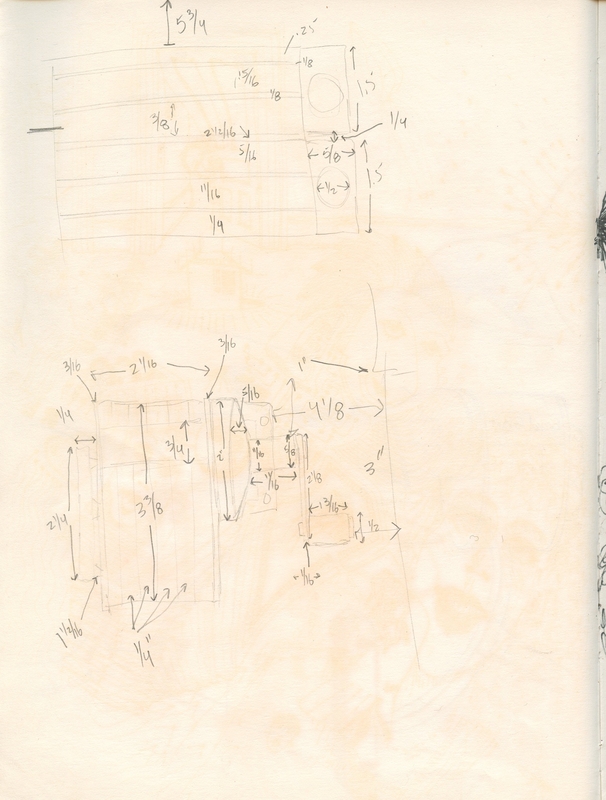 5 3/4
.25
1/8
1.5
15/16
1/8
3/8
1/4
2 1/2/16
5/16
5/8
1.5
1/2
11/16
1/4
3/16
1"
3/16
2 1/16
5/16
4 1/8
1/4
3/4
5/8
3"
11/16
2 1/8
2 1/4
3 3/8
1 3/16
1/2
1/16
1 1/2/16
1/4"